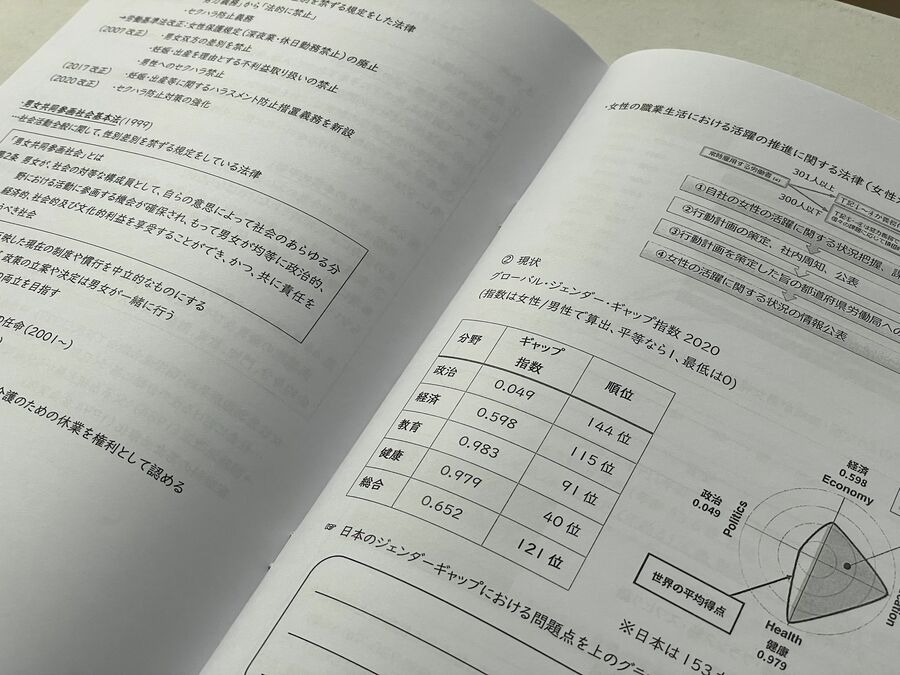 努力義務」から「法的に禁止」
を禁ずる規定をした法律
・セクハラ防止義務
→労働基準法改正：女性保護規定（深夜業・休日勤務禁止）の廃止
(2007 改正) ・男女双方の差別を禁止
・妊娠・出産を理由とする不利益取り扱いの禁止
・男性へのセクハラ禁止
(2017 改正) ・妊娠・出産等に関するハラスメント防止措置義務を新設
(2020 改正) ・セクハラ防止対策の強化
・男女共同参画社会基本法(1999)
…社会活動全般に関して、性別差別を禁ずる規定をしている法律
「男女共同参画社会」とは
第2条 男女が、社会の対等な構成員として、自らの意思によって社会のあらゆる分
野における活動に参画する機会が確保され、もって男女が均等に政治的、
経済的、社会的及び文化的利益を享受することができ、かつ、共に責任を
うべき社会
映した現在の制度や慣行を中立的なものにする
政策の立案や決定は男女が一緒に行う
両立を目指す
の任命(2001～)
介護のための休業を権利として認める
・女性の職業生活における活躍の推進に関する法律（女性
常時雇用する労働者
301人以上
300人以下
①自社の女性の活躍に関する状況把握、課
②行動計画の策定、社内周知、公表
③行動計画を策定した旨の都道府県労働局への
④女性の活躍に関する状況の情報公表
② 現状
グローバル・ジェンダー・ギャップ指数 2020
(指数は女性/男性で算出、平等なら1、最低は0)
分野 ギャップ指数 順位
政治 0.049 144位
経済 0.598 115位
教育 0.983 91位
健康 0.979 40位
総合 0.652 121位
経済
0.598
Economy
政治
0.049
Politics
世界の平均得点
Health
健康
0.979
☞ 日本のジェンダーギャップにおける問題点を上のグラ
※日本は153